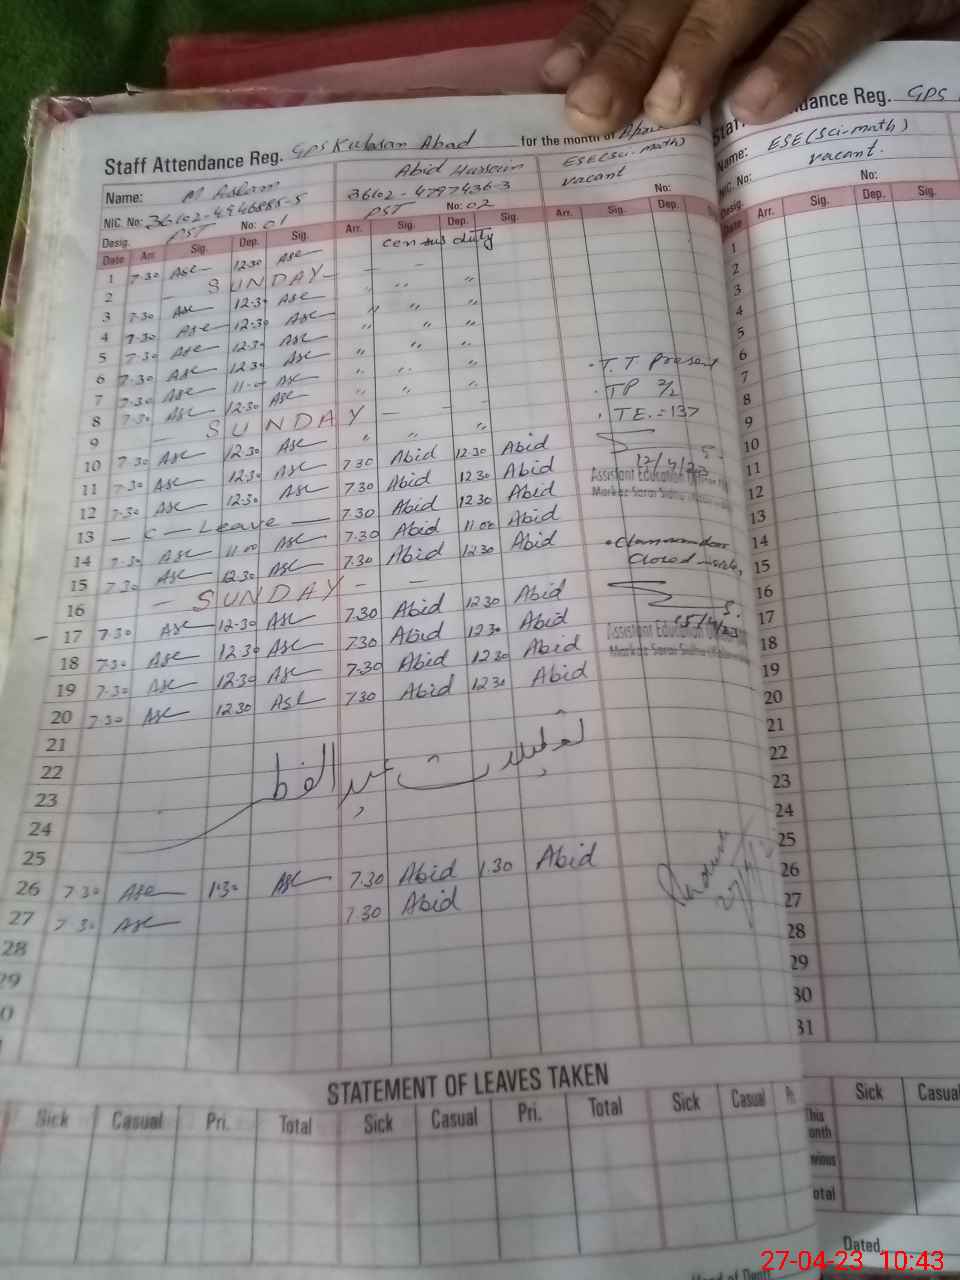 Staff Attendance Reg. GPS Abad for the month of
Name: M Aslam Abid Hussain ESE(Sci. math)
NIC. No: 36102-4946885-5 36102-4797436-3 vacant
Desig. PST No: 01 PST No: 02 No:
Date Arr. Sig. Dep. Sig. Arr. Sig. Dep. Sig. Arr. Sig. Dep.
1 7.30 Ase 12.30 Ase census duty
2 — SUNDAY — — —
3 7.30 Ase 12.30 Ase " " "
4 7.30 Ase 12.30 Ase " " "
5 7.30 Ase 12.30 Ase " " "
6 7.30 Ase 12.30 Ase " " "
7 7.30 Ase 11.00 Ase " " " . T.T present
8 7.30 Ase 12.30 Ase . TP 2/2
9 — SUNDAY — — . TE. = 137
10 7.30 Ase 12.30 Ase " " "
11 7.30 Ase 12.30 Ase 7.30 Abid 12.30 Abid 12/4/23
12 7.30 Ase 12.30 Ase 7.30 Abid 12.30 Abid Assistant Education
13 — C — Leave — 7.30 Abid 12.30 Abid Markaz Sarai Sidhu
14 7.30 Ase 11.00 Ase 7.30 Abid 11.00 Abid
15 7.30 Ase 12.30 Ase 7.30 Abid 12.30 Abid
16 — SUNDAY — —
17 7.30 Ase 12.30 Ase 7.30 Abid 12.30 Abid 15/4/23
18 7.30 Ase 12.30 Ase 7.30 Abid 12.30 Abid Assistant Education
19 7.30 Ase 12.30 Ase 7.30 Abid 12.30 Abid Markaz Sarai Sidhu
20 7.30 Ase 12.30 Ase 7.30 Abid 12.30 Abid
21
22
تعطیلات عید الفطر
23
24
25
26 7.30 Ase 1.30 Ase 7.30 Abid 1.30 Abid
27 7.30 Ase 7.30 Abid
28
STATEMENT OF LEAVES TAKEN
Sick Casual Pri. Total Sick Casual Pri. Total Sick Casual
dance Reg. GPS
Name: ESE(Sci-math)
NIC. No: vacant.
No:
Date Arr. Sig. Dep. Sig.
1
2
3
4
5
6
7
8
9
10
11
12
13
14
15
16
17
18
19
20
21
22
23
24
25
26
27
28
29
30
31
Sick Casual
Dated
27-04-23 10:43